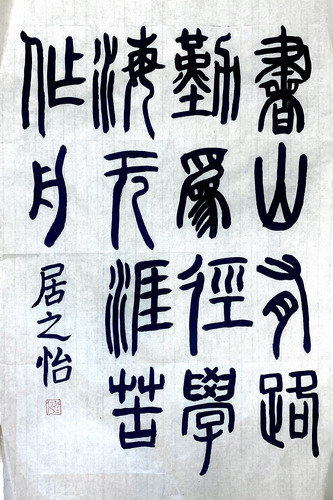 書山有路
勤爲徑學
海无涯苦
作舟
居之怡